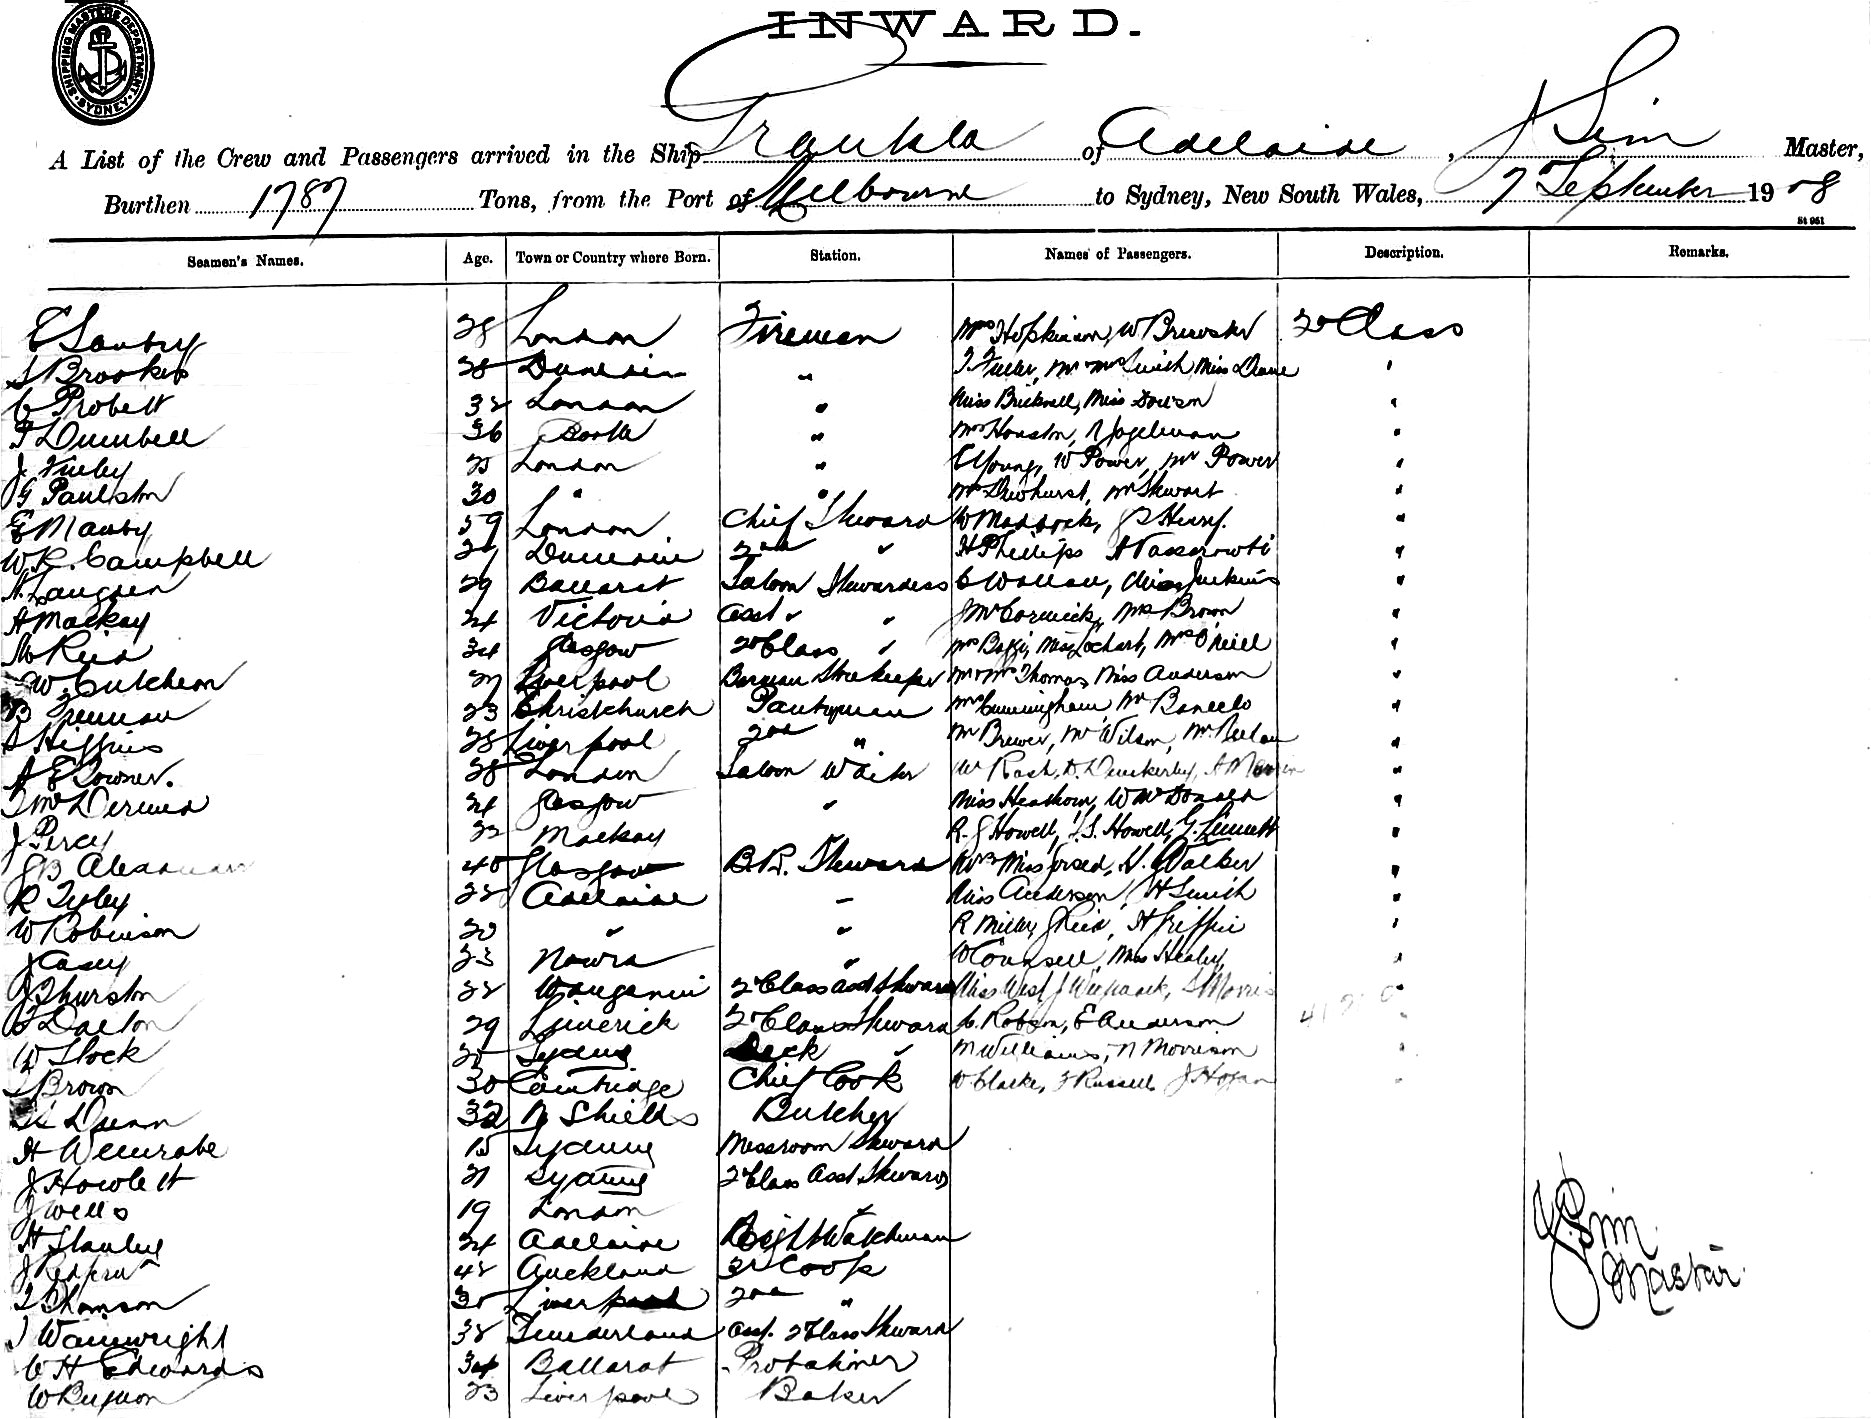 SHIPPING MASTERS DEPARTMENT SYDNEY
INWARD.
A List of the Crew and Passengers arrived in the Ship Grantala of Adelaide, J Sim Master,
Burthen 1787 Tons, from the Port of Melbourne to Sydney, New South Wales, 7 September 1908
St 961
Seamen's Names. Age. Town or Country where Born. Station. Names of Passengers. Description. Remarks.
28 London Fireman Mrs Hopkinson, W Brewster 2d Class
S Brookes 28 Dunedin " T. Fuller, Mr Mrs Smith, Miss Deane "
C Probett 32 London " Miss Bricknell, Miss Dowson "
T Dumbell 36 Bootle " Mrs Houston, "
J Furley 25 London " E Young, W Power, Mr Power "
G Paulston 30 " " Mrs Dewhurst, Mr Stewart "
E Manby 59 London Chief Steward W Maddock, J S Henry. "
W. R. Campbell 27 Dunedin 2nd " H Phillips "
H. Langsen 29 Ballarat Saloon Stewardess C Wallace, Miss Jenkins "
A Mackay 24 Victoria Asst " " J McCormick, Mrs Brown "
M Reid 34 Glasgow 2d Class " Mrs Miss Lochart, Mrs O'Neill "
W. Cutcheon 27 Liverpool Barman Storekeeper Mr Mrs Thomas, Miss Anderson "
B Freeman 23 Christchurch Pantryman Mrs Cunningham, Mr "
S Higgins 28 Liverpool 2nd " Mr Brewer, Mr Wilson, Mr "
A E Downer. 28 London Saloon Waiter W Rash, D. Dunkerley, "
T McDermid 24 Glasgow " Miss Henthorn, W McDonald "
J Percy 22 Mackay R. J Howell, T. S. Howell, G. Linnett "
J B 40 Glasgow B.R. Steward H. Walker "
R Tigley 22 Adelaide " Miss Anderson, H Smith "
W Robinson 20 " " R Miller, J Reid, H Griffin "
J Casey 23 Nowra " W Counsell, Miss Healey, "
J Thurston 22 Wanganui 2 Class Asst Steward Miss West, S Morris "
T Dalton 29 Limerick 2d Class Steward C. Robson, E Anderson "
W Stock 20 Sydney Deck " M Williams, N Morrison "
Brown 30 Cambridge Chief Cook W. Clarke, F Russell, J Hogan "
Dunn 32 N Shields Butcher
H Wemrabe 15 Sydney Messroom Steward
J Howlett 21 Sydney 2 Class Asst Steward
J Wells 19 London "
H Stanley 24 Adelaide Night Watchman
J Redfern 42 Auckland 3d Cook
T Thomson 30 Liverpool 2nd "
J Wainwright 38 Sunderland Asst. 2 Class Steward
C H Edwards 34 Ballarat Probationer
W Rugnon 23 Liverpool Baker
J. Sim
Master